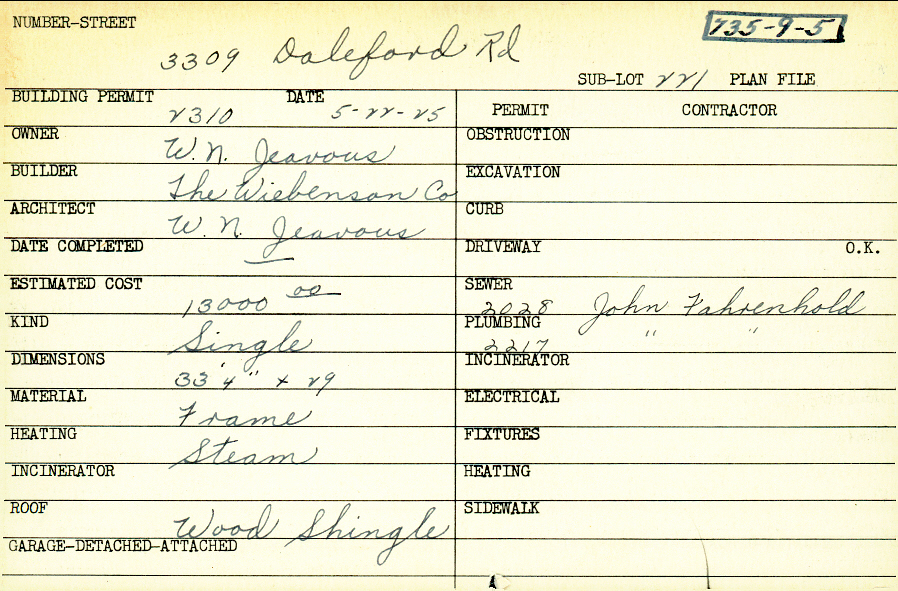 NUMBER-STREET
735-9-5
3309 Daleford Rd
SUB-LOT 221 PLAN FILE
BUILDING PERMIT 2310 DATE 5-22-25
PERMIT CONTRACTOR
OWNER W. N. Jeavous
OBSTRUCTION
BUILDER The Wiebenson Co
EXCAVATION
ARCHITECT W. N. Jeavous
CURB
DATE COMPLETED —
DRIVEWAY O.K.
ESTIMATED COST 13000 00
SEWER 2028 John Fahrenhold
KIND Single
PLUMBING 2217 " "
DIMENSIONS 33'4" x 29
INCINERATOR
MATERIAL Frame
ELECTRICAL
HEATING Steam
FIXTURES
INCINERATOR
HEATING
ROOF Wood Shingle
SIDEWALK
GARAGE-DETACHED-ATTACHED